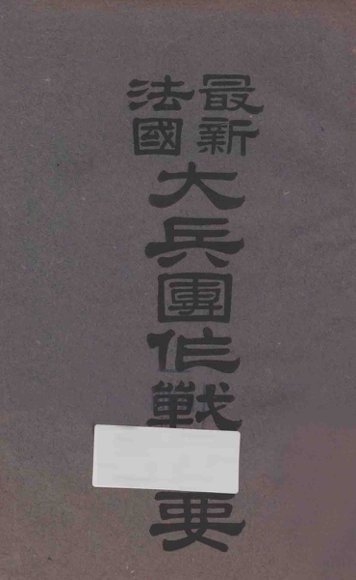 最新
法國
大兵團作戰要